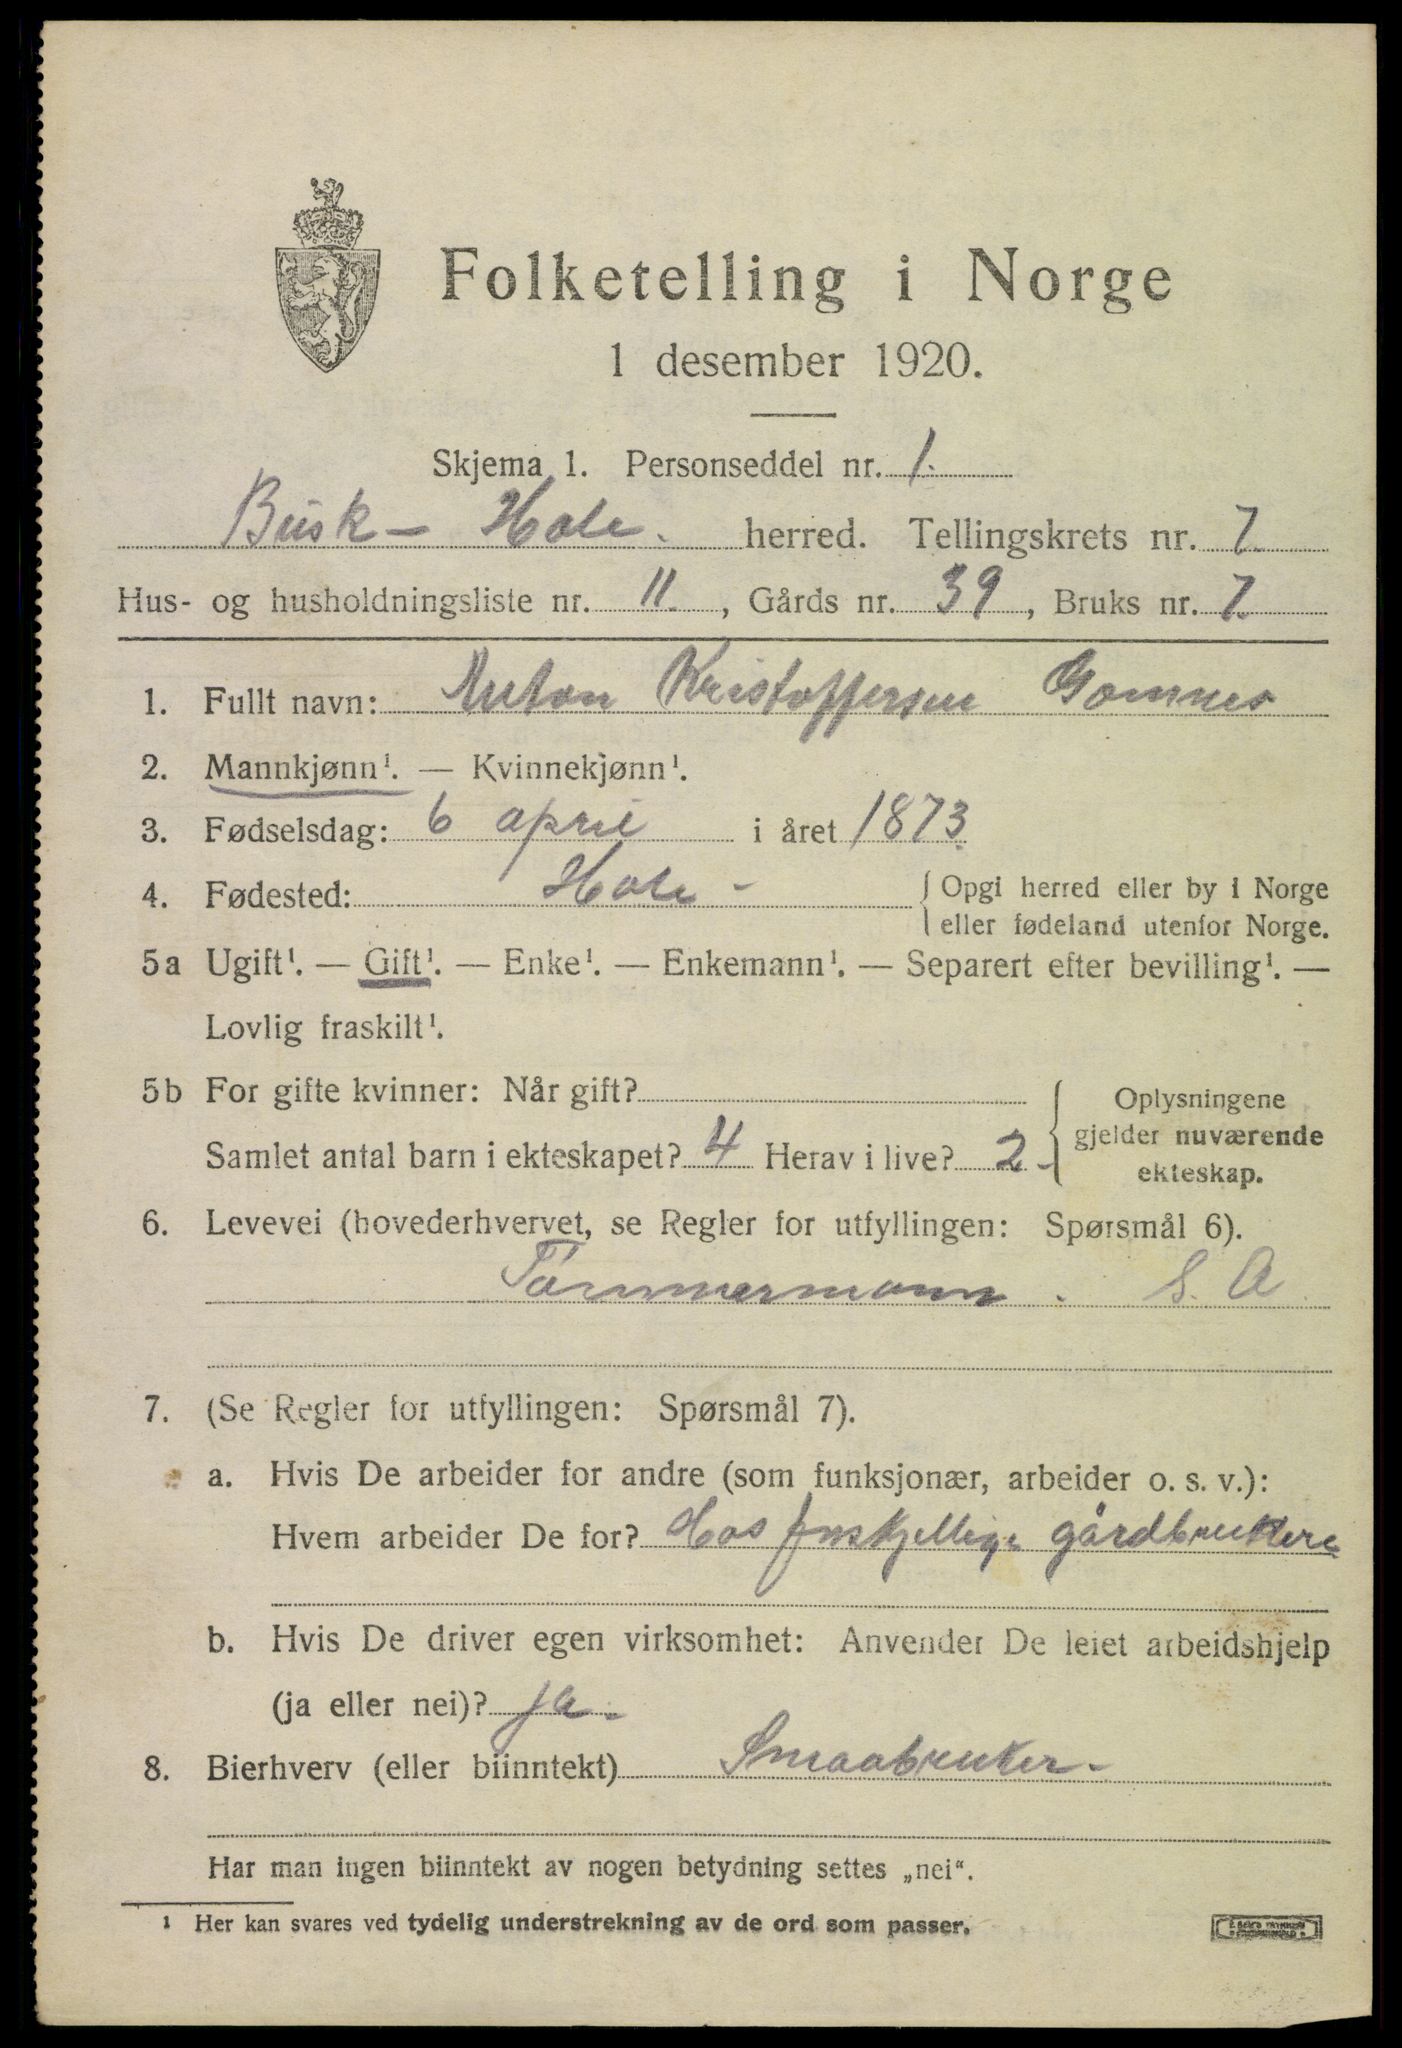 Folketelling i Norge
1 desember 1920.
Skjema 1. Personseddel nr. 1.
Busk – Hole. herred. Tellingskrets nr. 7.
Hus- og husholdningsliste nr. 11. , Gårds nr. 39 , Bruks nr. 7.
1. Fullt navn: Anton Kristoffersen Gomnes
2. Mannkjønn¹. — Kvinnekjønn¹.
3. Fødselsdag: 6 april i året 1873.
4. Fødested: Hole – { Opgi herred eller by i Norge
eller fødeland utenfor Norge.
5a Ugift¹. — Gift¹. — Enke¹. — Enkemann¹. — Separert efter bevilling¹. —
Lovlig fraskilt¹.
5b For gifte kvinner: Når gift? { Oplysningene
gjelder nuværende
Samlet antal barn i ekteskapet? 4 Herav i live? 2 –
ekteskap.
6. Levevei (hovederhvervet, se Regler for utfyllingen: Spørsmål 6).
Tømmermann . S. A
7. (Se Regler for utfyllingen: Spørsmål 7).
a. Hvis De arbeider for andre (som funksjonær, arbeider o. s. v.):
Hvem arbeider De for? Hos forskjellige gårdbrukere
b. Hvis De driver egen virksomhet: Anvender De leiet arbeidshjelp
(ja eller nei)? ja.
8. Bierhverv (eller biinntekt) Smaabruker –
Har man ingen biinntekt av nogen betydning settes „nei“.
1 Her kan svares ved tydelig understrekning av de ord som passer.